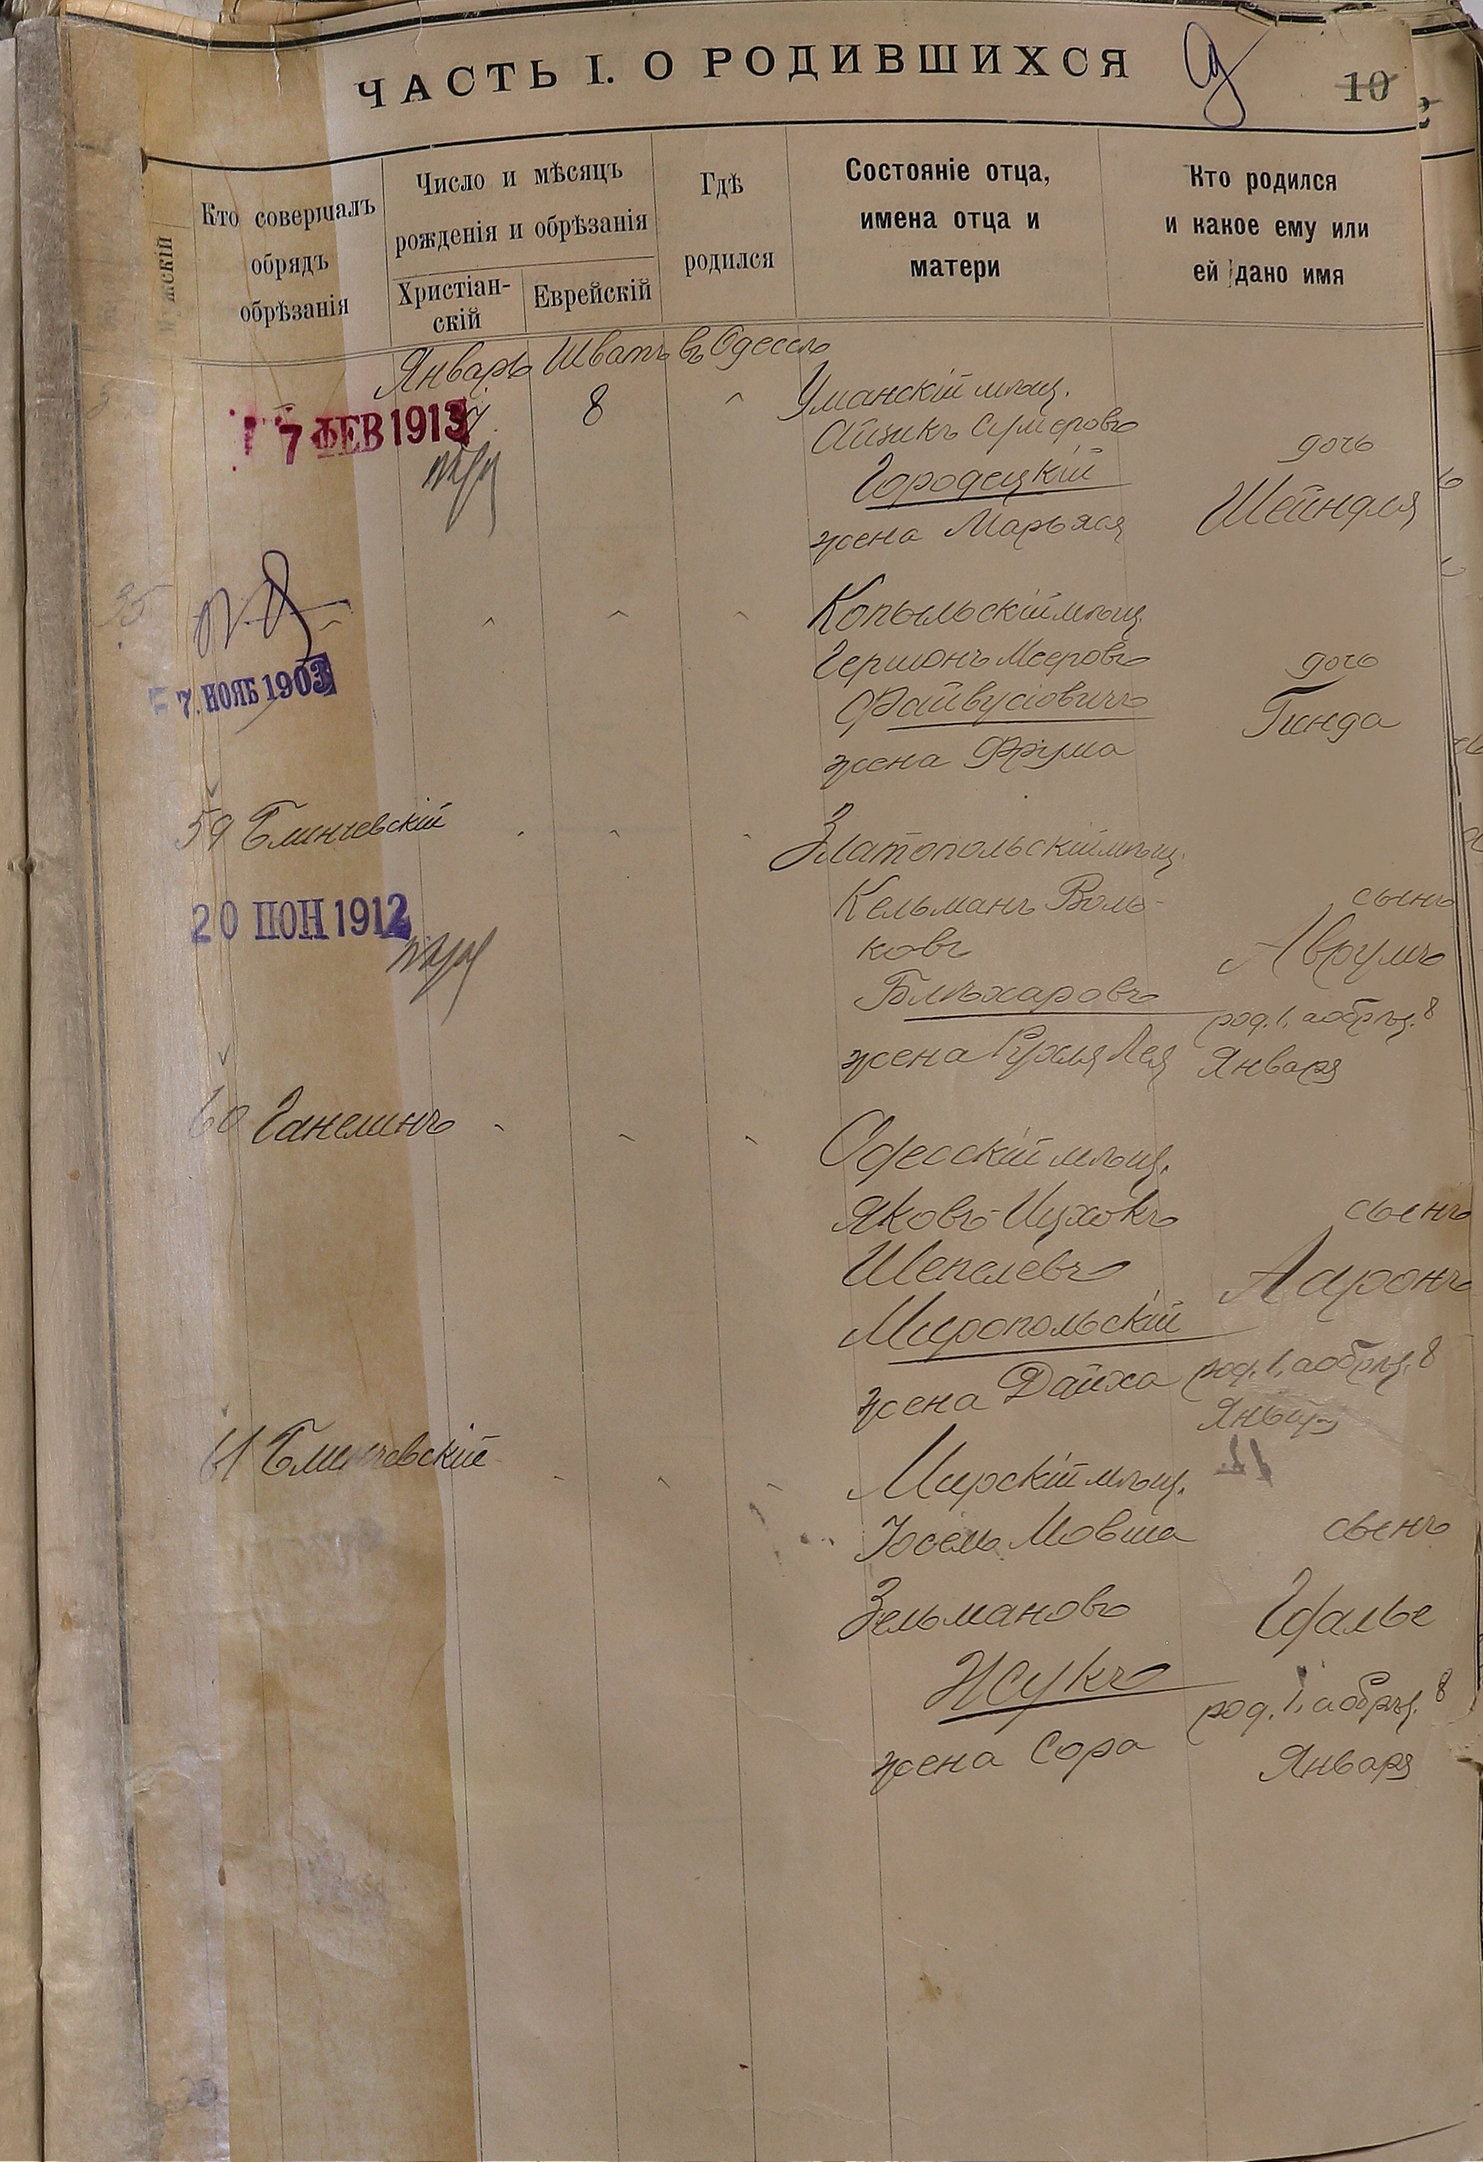 ЧАСТЬ I. О РОДИВШИХСЯ
10
Мужскій
Кто совершалъ
обрядъ
обрѣзанія
Число и мѣсяцъ
рожденія и обрѣзанія
Христіан-
скій
Еврейскій
Гдѣ
родился
Состояніе отца,
имена отца и
матери
Кто родился
и какое ему или
ей дано имя
Январь Шватъ въ Одессѣ
7 ФЕВ 1913
8
Уманскій мѣщ.
Айзикъ Сумеровъ
Городецкій
жена Марьяся
дочь
Шейндля
35
7. НОЯБ 1903
Копыльскій мѣщ.
Гершонъ Мееровъ
Файвусіовичъ
жена Фрума
дочь
Гинда
59 Блинчевскій
20 ІЮН 1912
Златопольскій мѣщ.
Кельманъ Воль-
ковъ
Блѣхаровъ
жена Рухля Лея
сынъ
Аврумъ
род. 1, а обрѣз. 8
Января
60 Ганелинъ
Одесскій мѣщ.
Яковъ-Ицхокъ
Шепелевъ
Миропольскій
жена Дайха
сынъ
Ааронъ
род. 1, а обрѣз. 8
Января
61 Блинчевскій
Мирскій мѣщ.
Іосель Мовша
Зельмановъ
Жукъ
жена Сора
сынъ
род. 1, а обрѣз. 8
Января